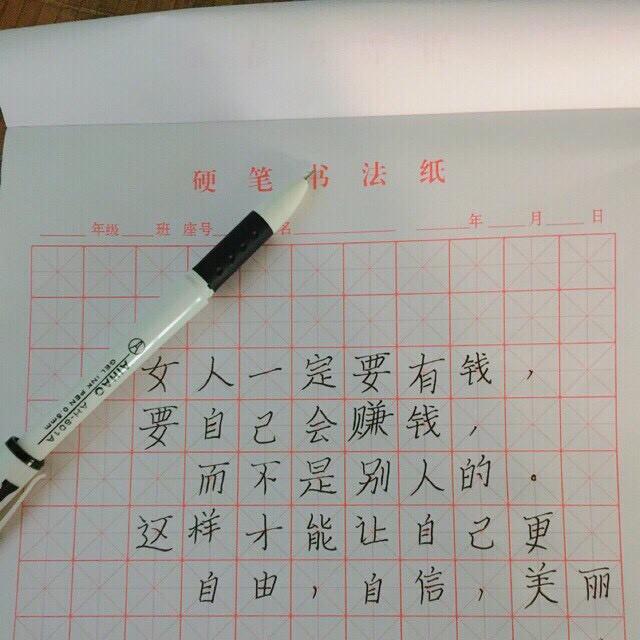 硬笔书法纸
年级 班 座号 名 年 月 日
AIHAO AH-801A
GEL INK PEN 0.5mm
女人一定要有钱，
要自己会赚钱，
而不是别人的。
这样才能让自己更
自由，自信，美丽